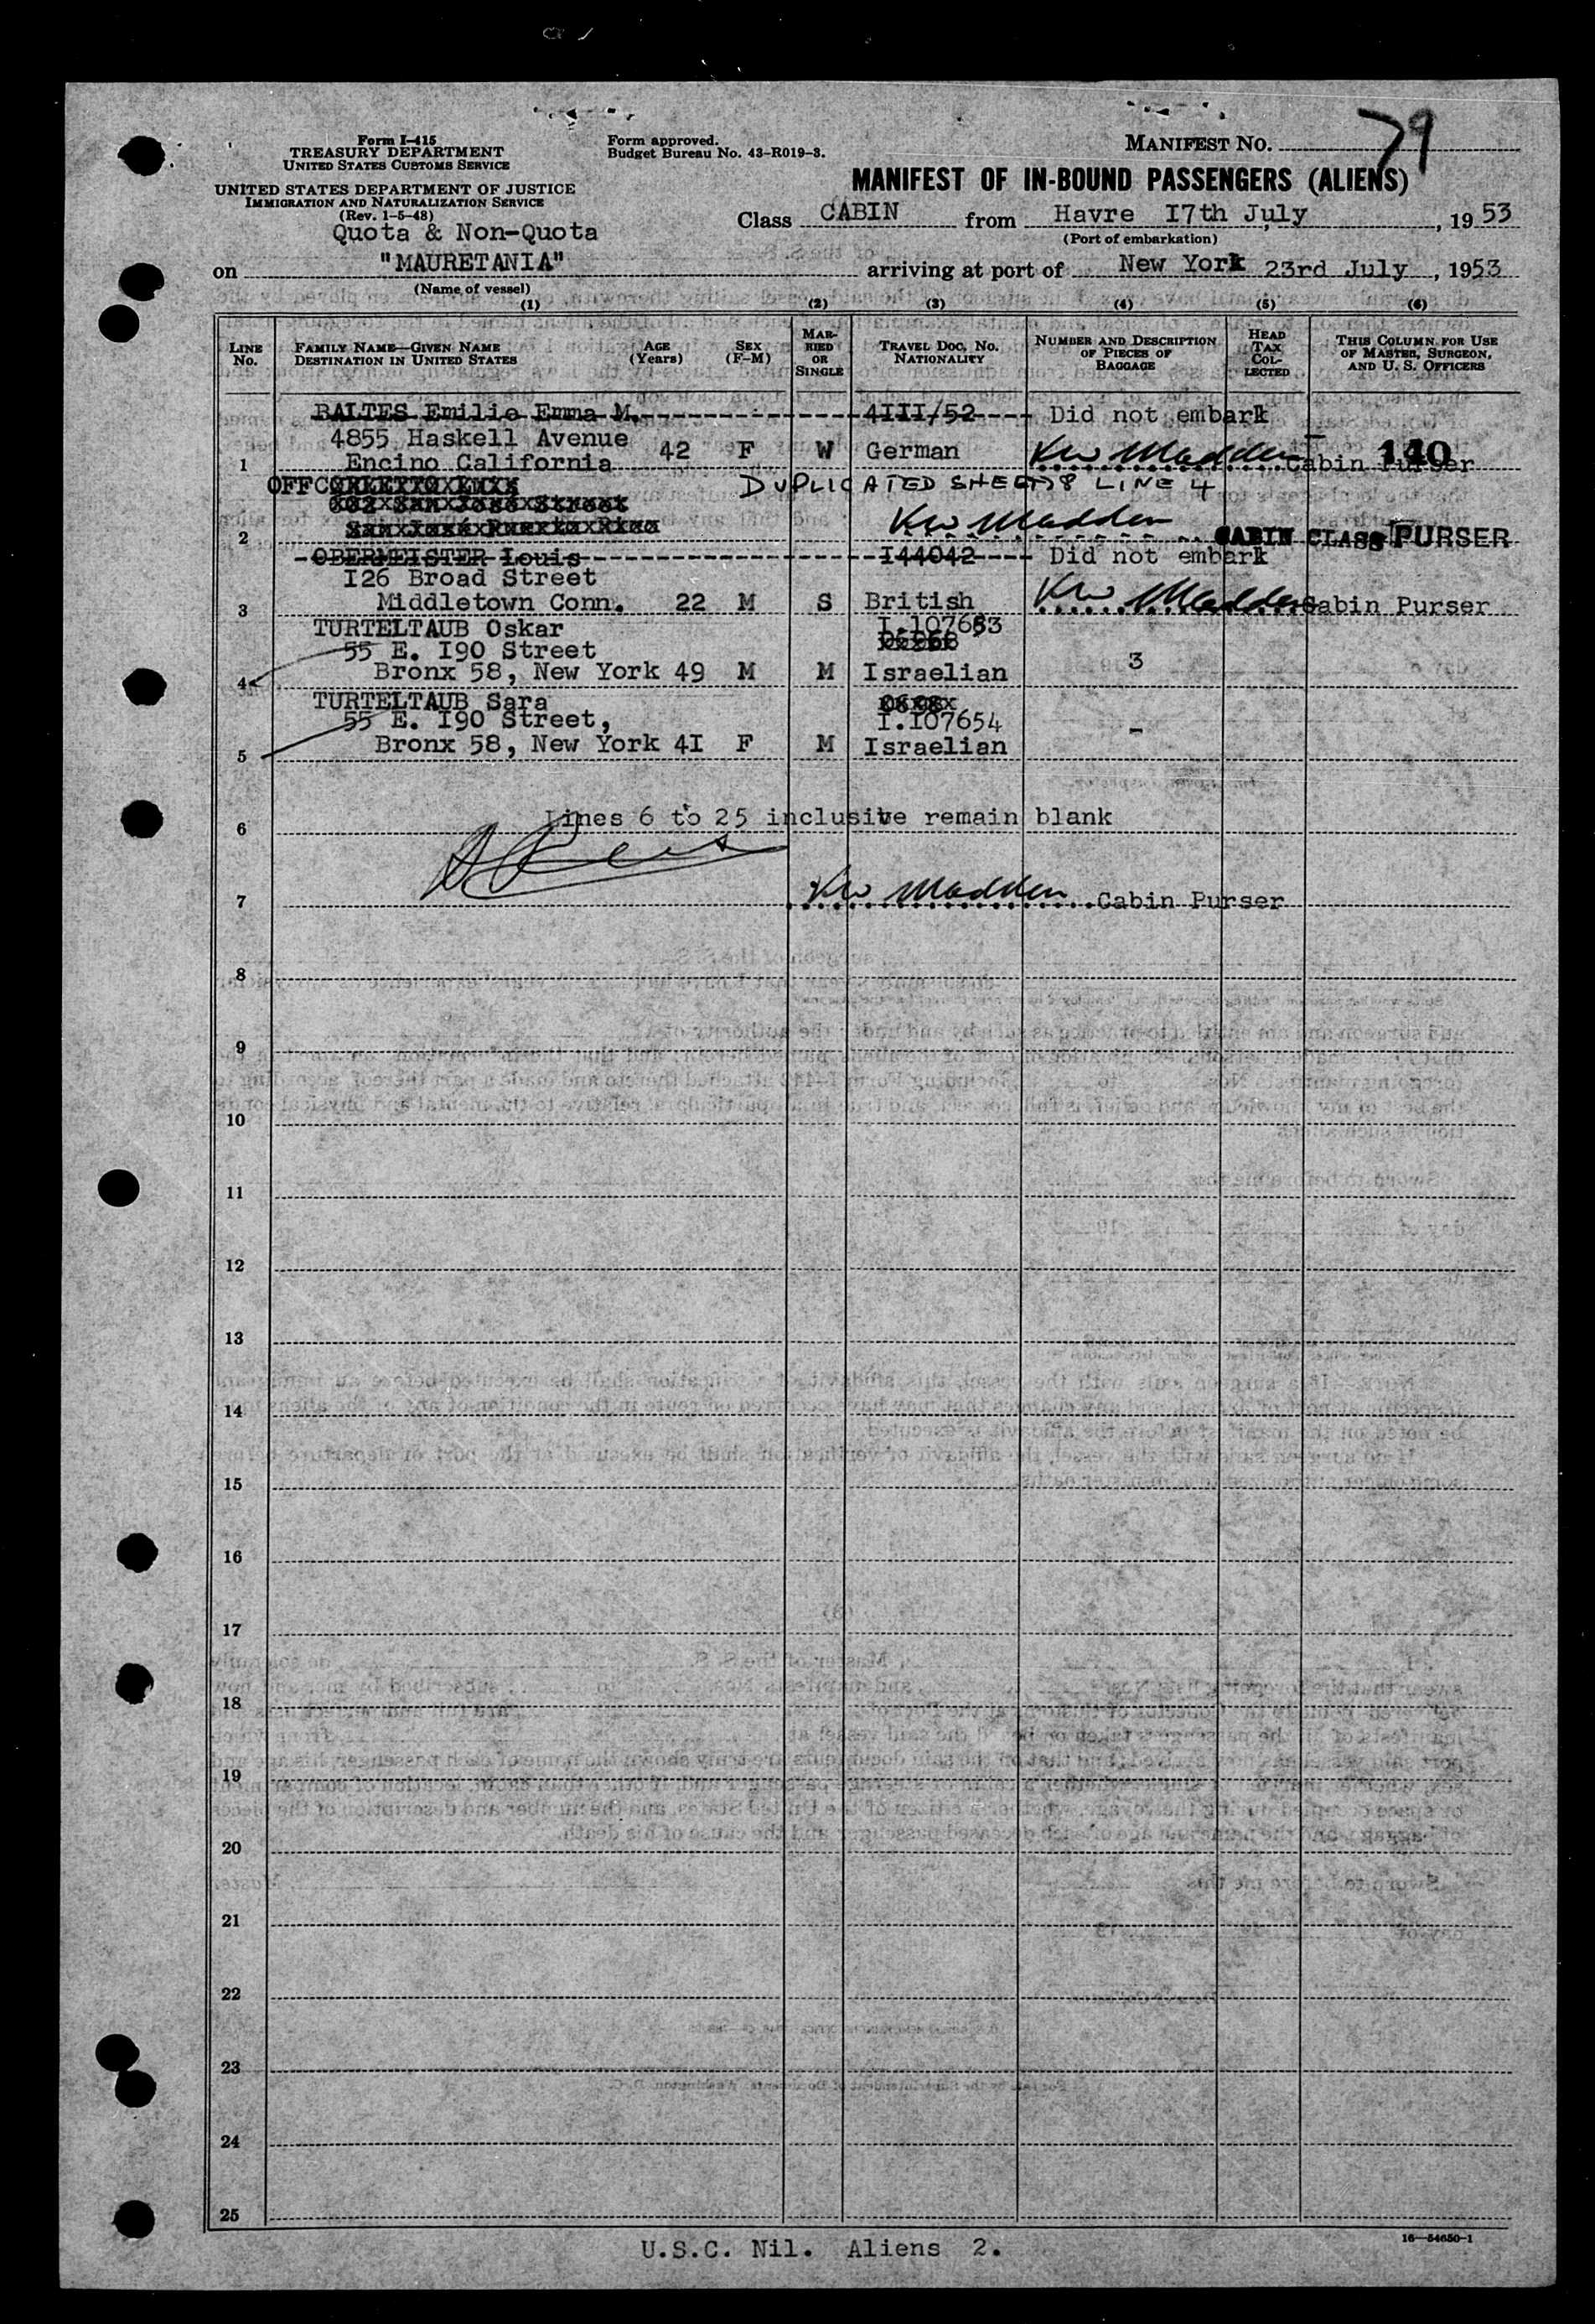 Form I-415
TREASURY DEPARTMENT
UNITED STATES CUSTOMS SERVICE
UNITED STATES DEPARTMENT OF JUSTICE
IMMIGRATION AND NATURALIZATION SERVICE
(Rev. 1-5-48)
Form approved.
Budget Bureau No. 43-R019-3.
MANIFEST NO. 79
MANIFEST OF IN-BOUND PASSENGERS (ALIENS)
Quota & Non-Quota
Class CABIN from Havre 17th July, 1953
(Port of embarkation)
on "MAURETANIA" arriving at port of New York 23rd July, 1953
(Name of vessel)
(1) (2) (3) (4) (5) (6)
LINE No.
FAMILY NAME—GIVEN NAME
DESTINATION IN UNITED STATES
AGE (Years)
SEX (F-M)
MARRIED OR SINGLE
TRAVEL DOC. NO.
NATIONALITY
NUMBER AND DESCRIPTION OF PIECES OF BAGGAGE
HEAD TAX COLLECTED
THIS COLUMN FOR USE OF MASTER, SURGEON, AND U. S. OFFICERS
BALTES Emilie Emma M. 4III/52 Did not embark
4855 Haskell Avenue
1 Encino California 42 F W German KW Madden Cabin Purser 140
OFF DUPLICATED SHEET 78 LINE 4
2 KW Madden CABIN CLASS PURSER
OBERMEISTER Louis I44042 Did not embark
I26 Broad Street
3 Middletown Conn. 22 M S British KW Madden Cabin Purser
TURTELTAUB Oskar I.107653
55 E. I90 Street
4 Bronx 58, New York 49 M M Israelian 3
TURTELTAUB Sara
55 E. I90 Street, I.I07654
5 Bronx 58, New York 4I F M Israelian -
6 Lines 6 to 25 inclusive remain blank
7 KW Madden Cabin Purser
8
9
10
11
12
13
14
15
16
17
18
19
20
21
22
23
24
25
16—54650-1
U.S.C. Nil. Aliens 2.